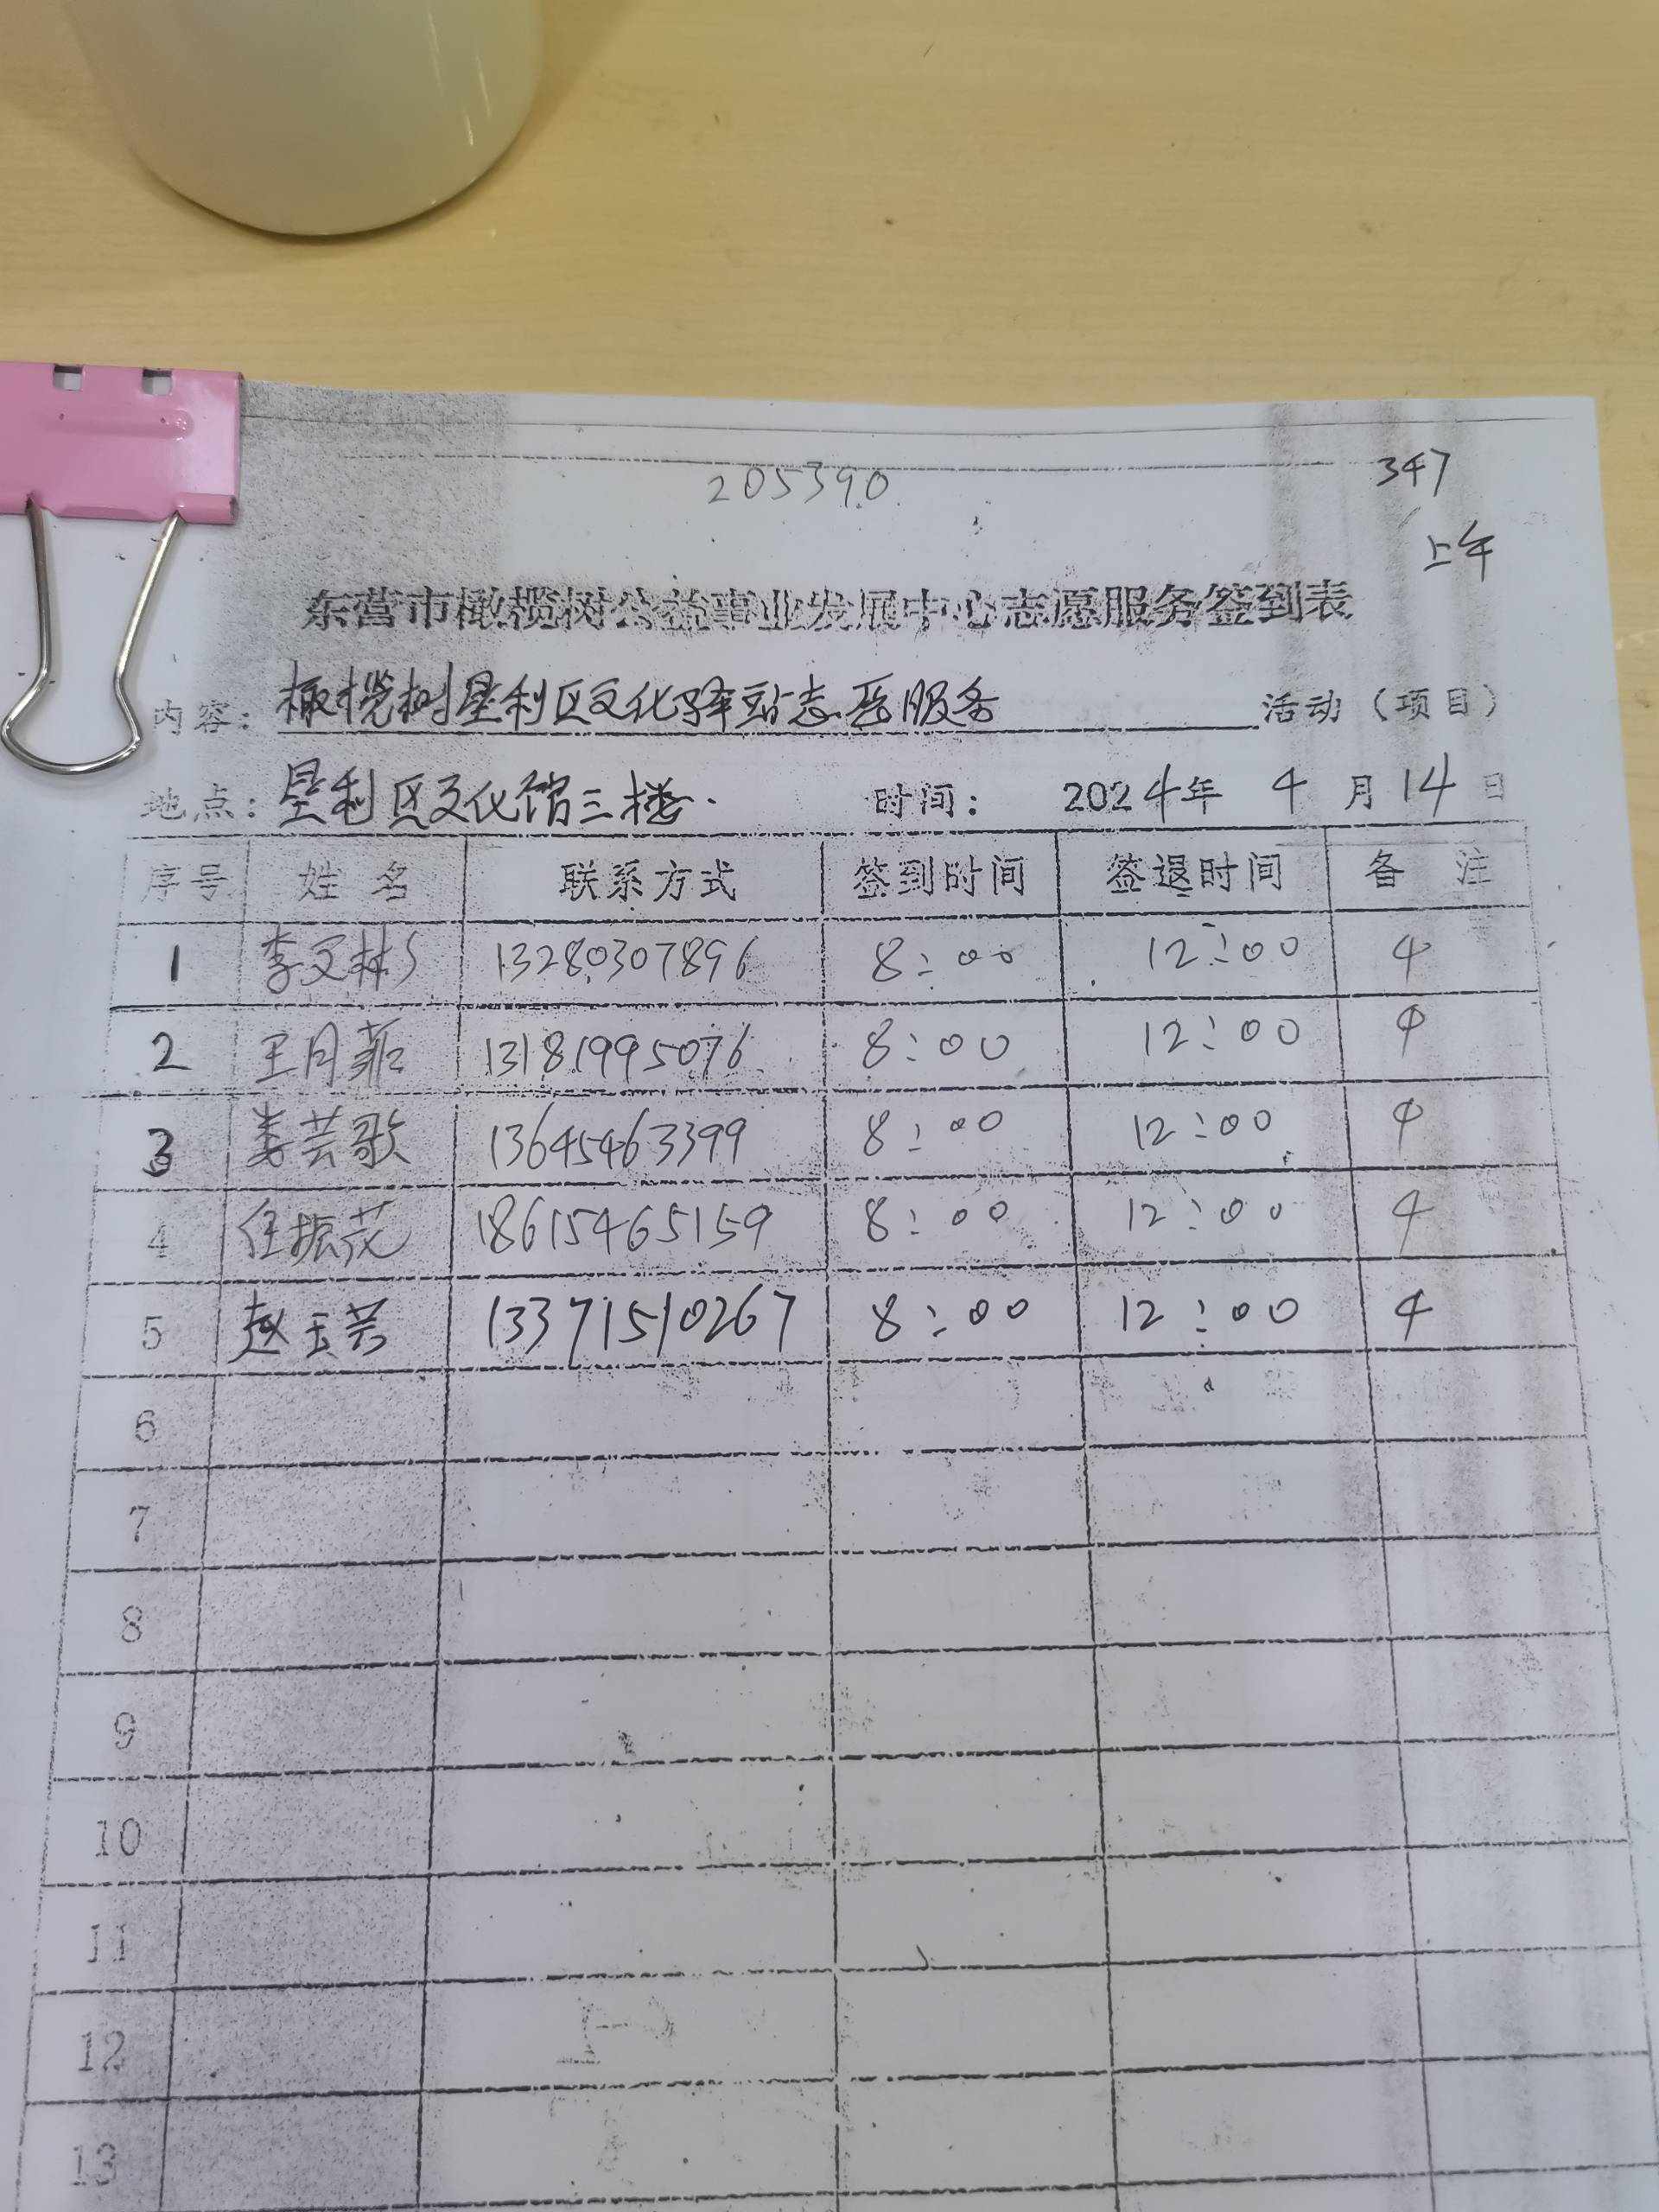 205390
347
上午
东营市橄榄树公益事业发展中心志愿服务签到表
内容: 橄榄树垦利区文化驿站志愿服务 活动（项目）
地点: 垦利区文化馆三楼. 时间: 2024年 4 月 14 日
序号 姓 名 联系方式 签到时间 签退时间 备 注
1 李文彬 13280307896 8:00 12:00 4
2 王月 13181995076 8:00 12:00 4
3 娄芸歌 13645463399 8:00 12:00 4
4 任振花 18615465159 8:00 12:00 4
5 赵玉芸 13371510267 8:00 12:00 4
6
7
8
9
10
11
12
13